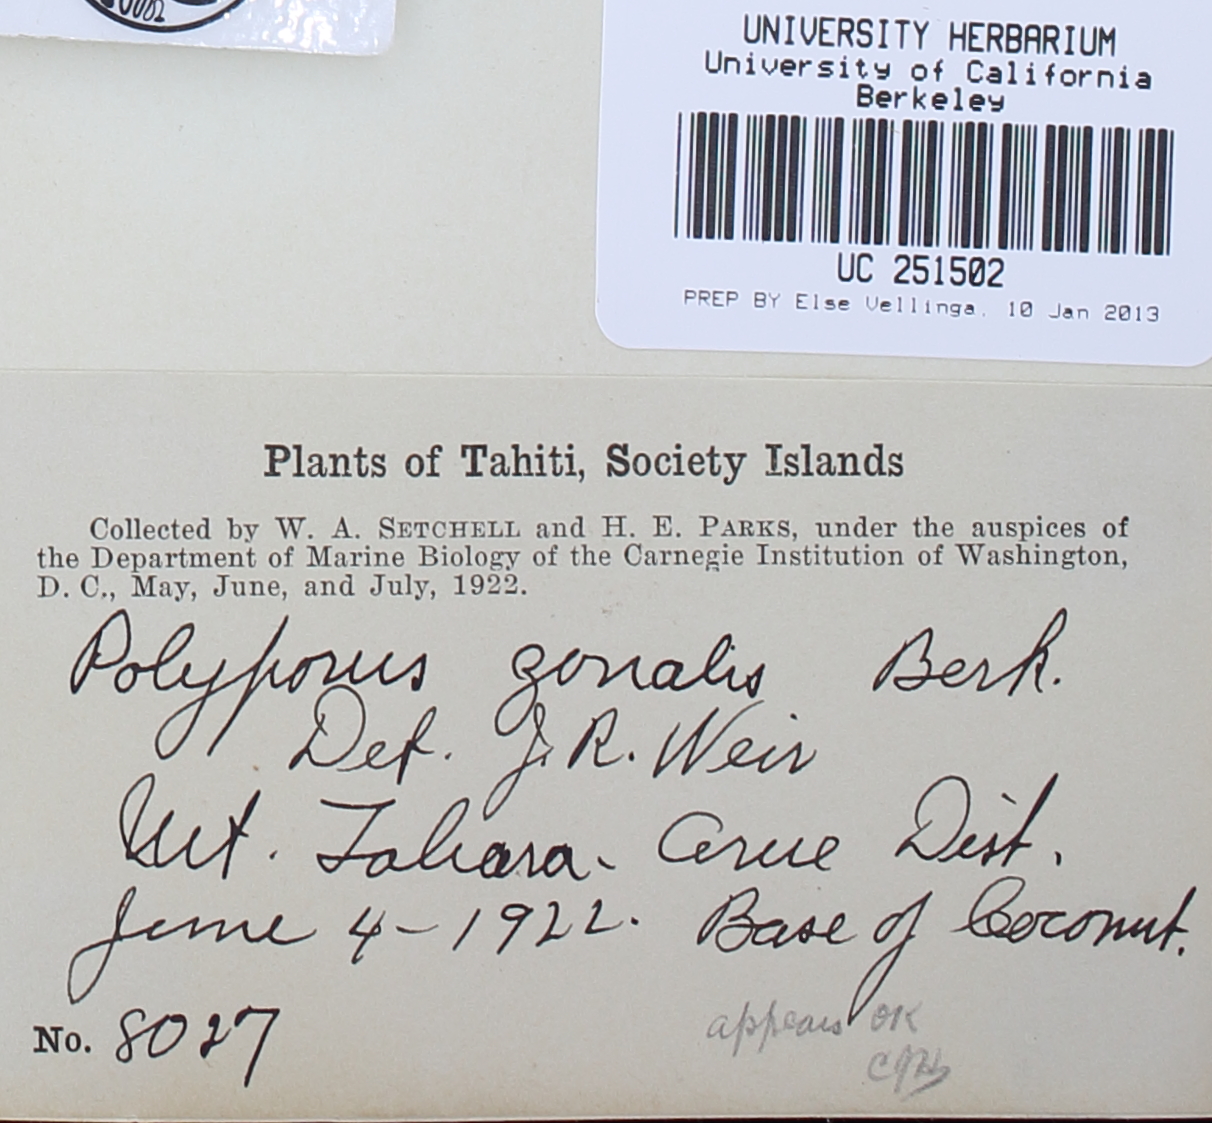 UNIVERSITY HERBARIUM
University of California
Berkeley
UC 251502
PREP BY Else Vellinga. 10 Jan 2013
Plants of Tahiti, Society Islands
Collected by W. A. SETCHELL and H. E. PARKS, under the auspices of
the Department of Marine Biology of the Carnegie Institution of Washington,
D. C., May, June, and July, 1922.
Polyporus zonalis Berk.
Det. J. R. Weir
Mt. Tahara - Arue Dist.
June 4-1922. Base of Coconut.
No. 8027
appears OK